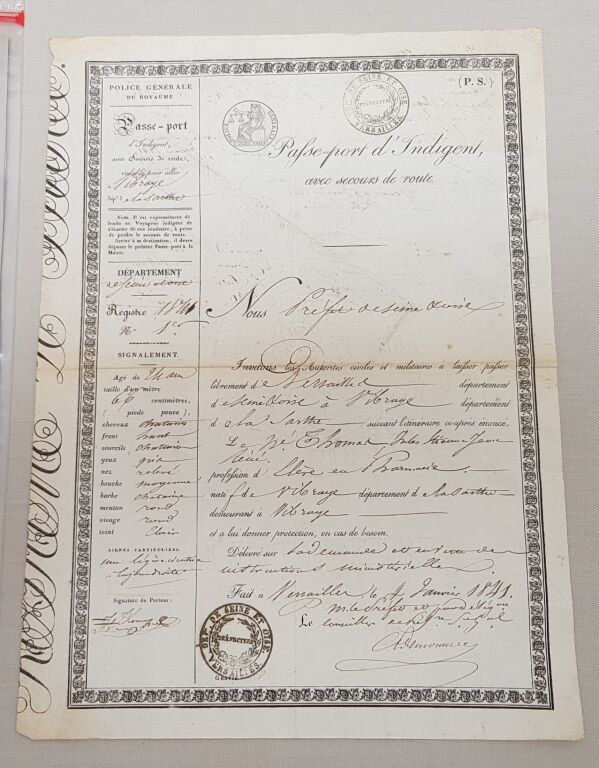 POLICE GÉNÉRALE
DU ROYAUME
Passe-port
d'Indigent,
avec Secours de route,
valable pour aller
Vibraye
dép.t de la Sarthe
Nota. Il est expressément défendu au Voyageur indigent de
s'écarter de son itinéraire, à peine
de perdre le secours de route.
Arrivé à sa destination, il devra
déposer le présent Passe-port à la
Mairie.
DÉPARTEMENT
de Seine et Oise
Registre 1841
N.° 1er
SIGNALEMENT.
Agé de
taille d'un mètre
66 centimètres,
( pieds pouce, )
cheveux chatains
front haut
sourcils chatains
yeux gris
nez relevé
bouche moyenne
barbe chataine
menton rond
visage rond
teint clair
SIGNES PARTICULIERS.
une légère cicatrice
Signature du Porteur:
(P. S.)
DÉP.T DE SEINE ET OISE
PRÉFECTURE
VERSAILLES
Passe-port d'Indigent,
avec secours de route.
Nous Préfet de Seine et Oise
Invitons les Autorités civiles et militaires à laisser passer
librement de Versailles département
de Seine et Oise à Vibraye département
de la Sarthe suivant l'itinéraire ci-après énoncé,
Le Thomas, Jules
profession d'Elève en Pharmacie
natif de Vibraye département de la Sarthe
demeurant à Vibraye
et à lui donner protection, en cas de besoin.
Délivré sur sa demande et en vertu des
instructions ministérielles
Fait à Versailles le 4 Janvier 1841.
Le conseiller
DÉP.T DE SEINE ET OISE
PRÉFECTURE
VERSAILLES